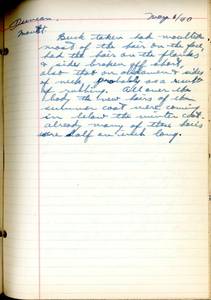 May 6/40
Moult.
Buck taken had moulted
most of the hair on the face,
had the hair on the flanks
& sides broken off short,
also that on abdomen & sides
of neck, probably as a result
of rubbing. All over the
body the new hairs of the
summer coat were coming
in below the winter coat.
already many of these hairs
were half an inch long.